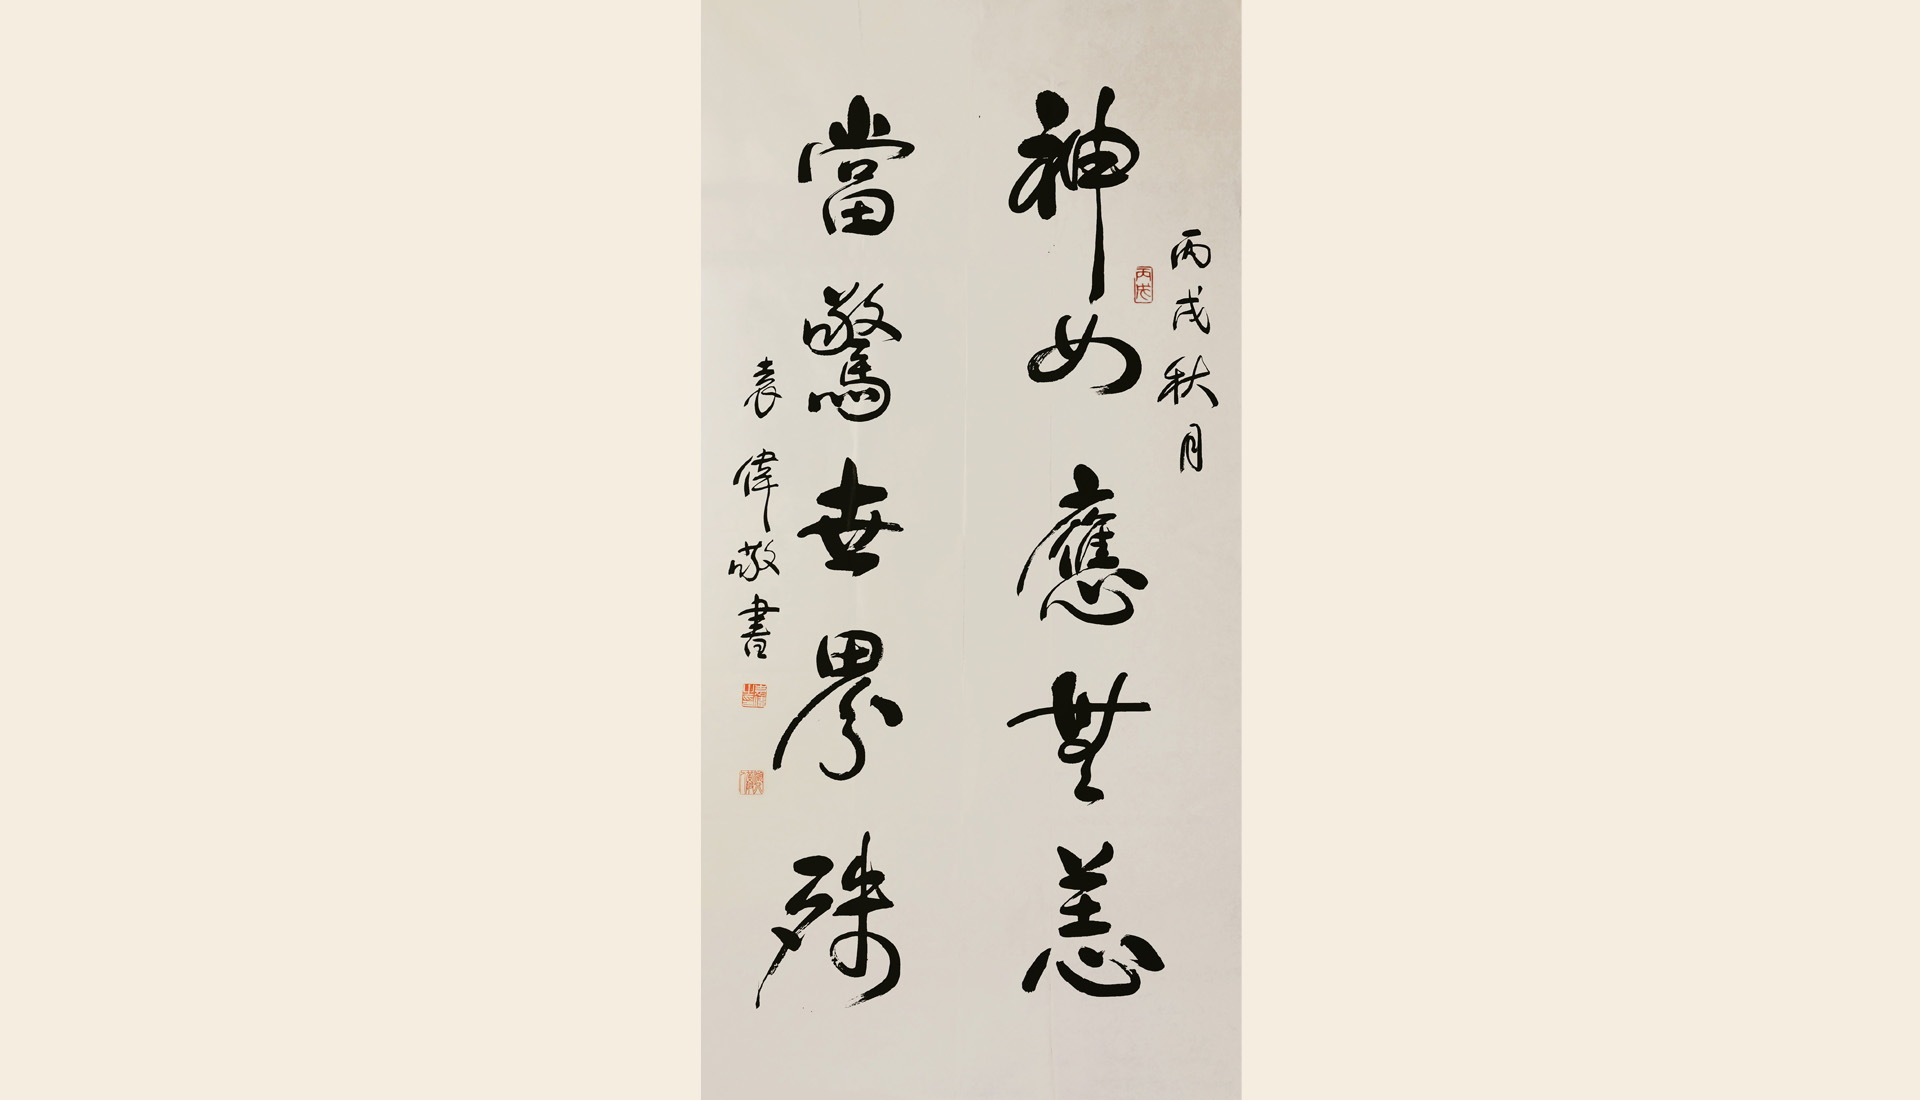 丙戌秋月
丙戌
神女應無恙
當驚世界殊
袁偉敬書